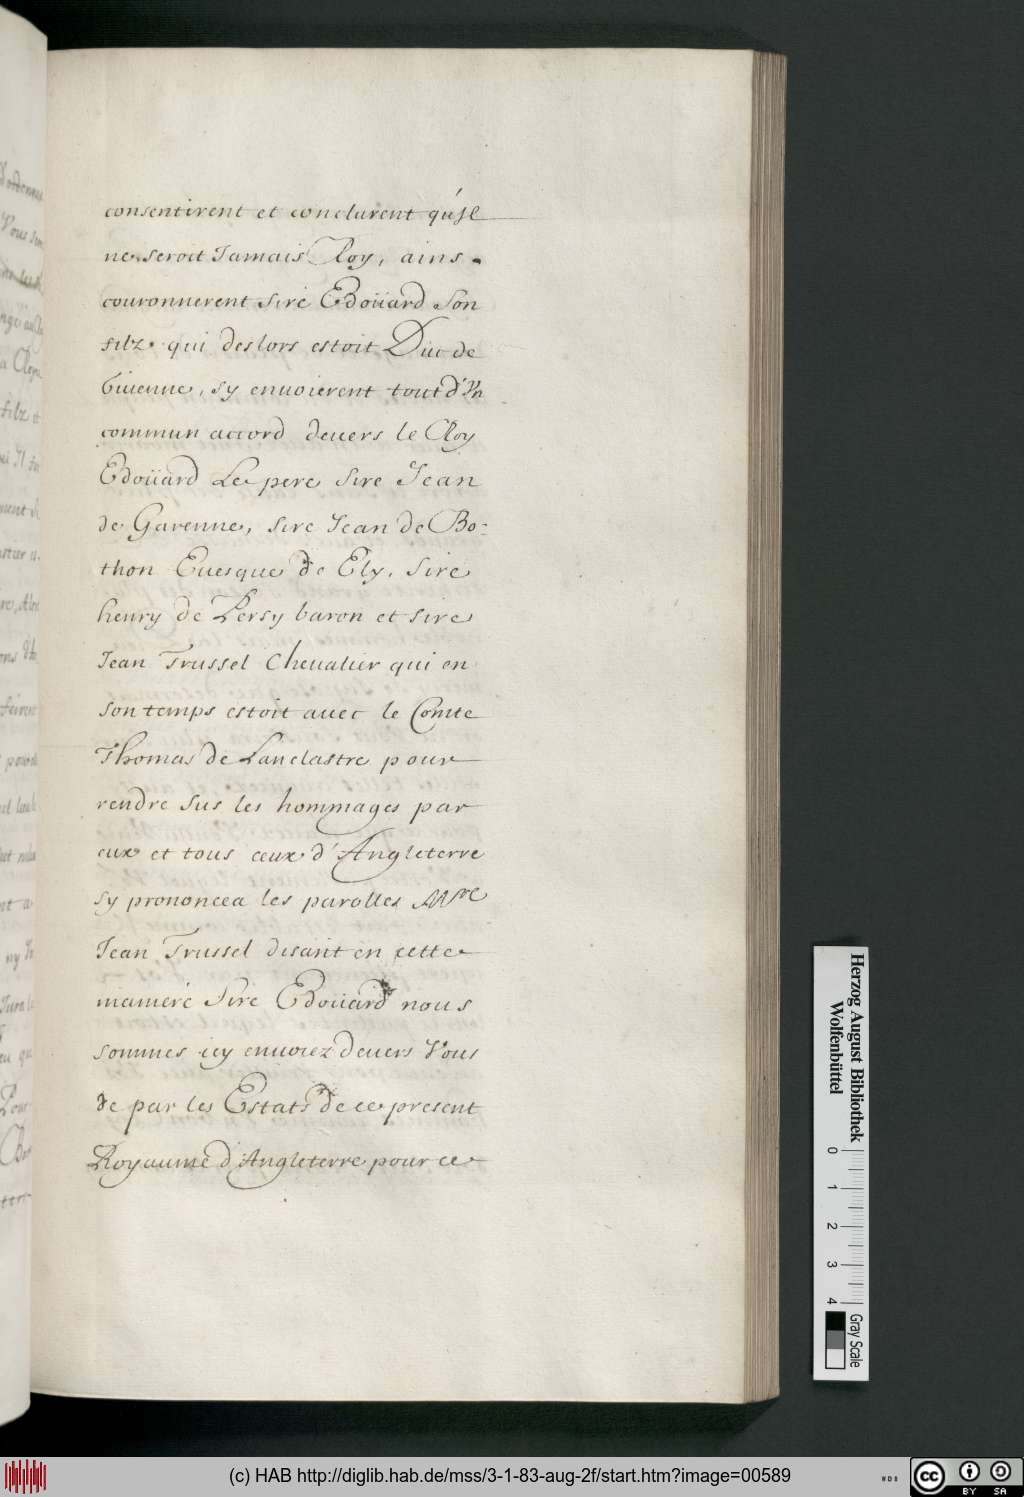 consentirent et conclurent qu'Jl
ne seroit Jamais Roy, ains
couronnerent sire Edoüard son
filz qui deslors estoit Duc de
Guienne, sy enuoierent tout d'Vn
commun accord deuers le Roy
Edoüard Le pere sire Jean
de Garenne, sire Jean de Bo-
thon Euesque de Ely, sire
henry de Persy baron et sire
Jean Trussel Cheualier qui en
son temps estoit auec le Comte
Thomas de Lanclastre pour
rendre sus les hommages par
eux et tous ceux d'Angleterre
sy prononcea les parolles Mre
Jean Trussel disant en cette
maniere Sire Edoüard nous
sommes icy enuoiez deuers Vous
de par les Estats de ce present
Royaume d'Angleterre pour ce
Herzog August Bibliothek
Wolfenbüttel
0 1 2 3 4
Gray Scale
(c) HAB http://diglib.hab.de/mss/3-1-83-aug-2f/start.htm?image=00589
cc BY SA